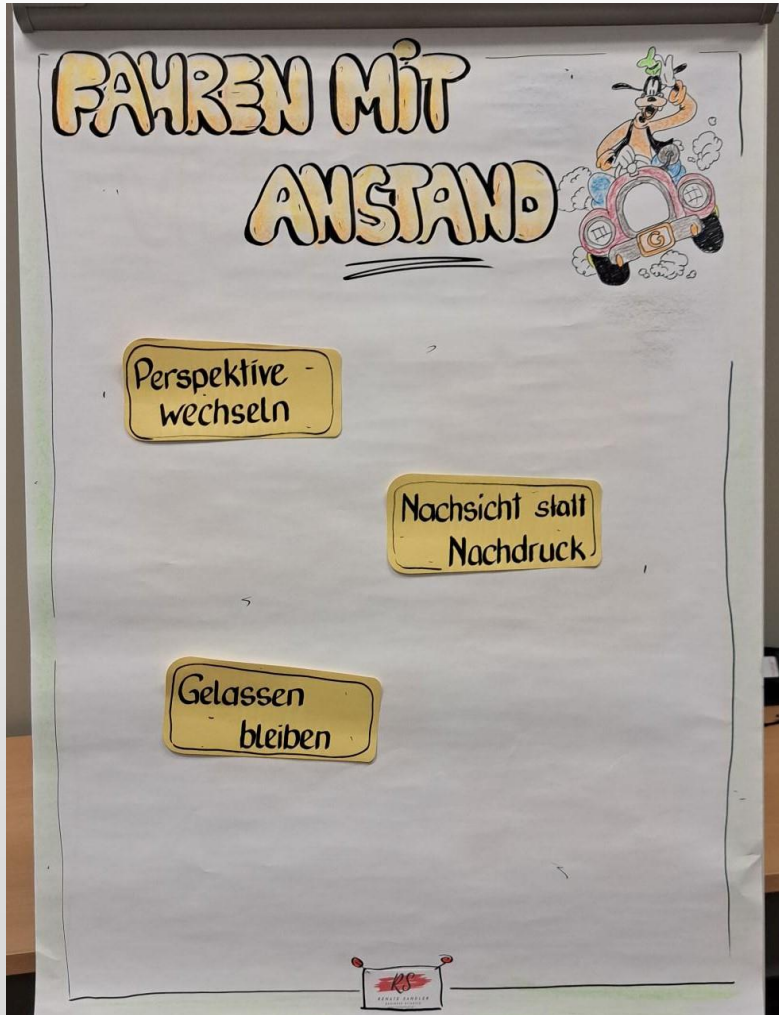 FAHREN MiT
ANSTAND
G
Perspektive -
wechseln
Nachsicht statt
Nachdruck
Gelassen
bleiben
RS